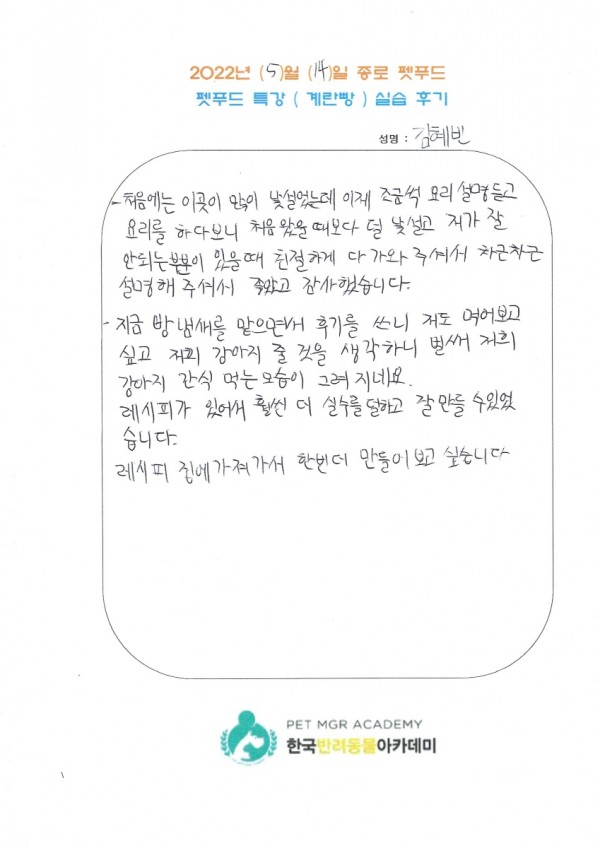 2022년 (5)월 (14)일 종로 펫푸드
펫푸드 특강 ( 계란빵 ) 실습 후기
성명 : 김혜빈
- 처음에는 이곳이 많이 낯설었는데 이제 조금씩 요리 설명듣고
요리를 하다보니 처음 왔을때보다 덜 낯설고 저가 잘
안되는부분이 있을때 친절하게 다가와 주셔서 차근차근
설명해 주셔서 좋았고 감사했습니다.
- 지금 빵 냄새를 맡으면서 후기를 쓰니 저도 먹어보고
싶고 저희 강아지 줄 것을 생각하니 벌써 저희
강아지 간식 먹는모습이 그려지네요.
레시피가 있어서 훨씬 더 실수를덜하고 잘만들 수있었
습니다.
레시피 집에가져가서 한번더 만들어보고 싶습니다
PET MGR ACADEMY
한국반려동물아카데미